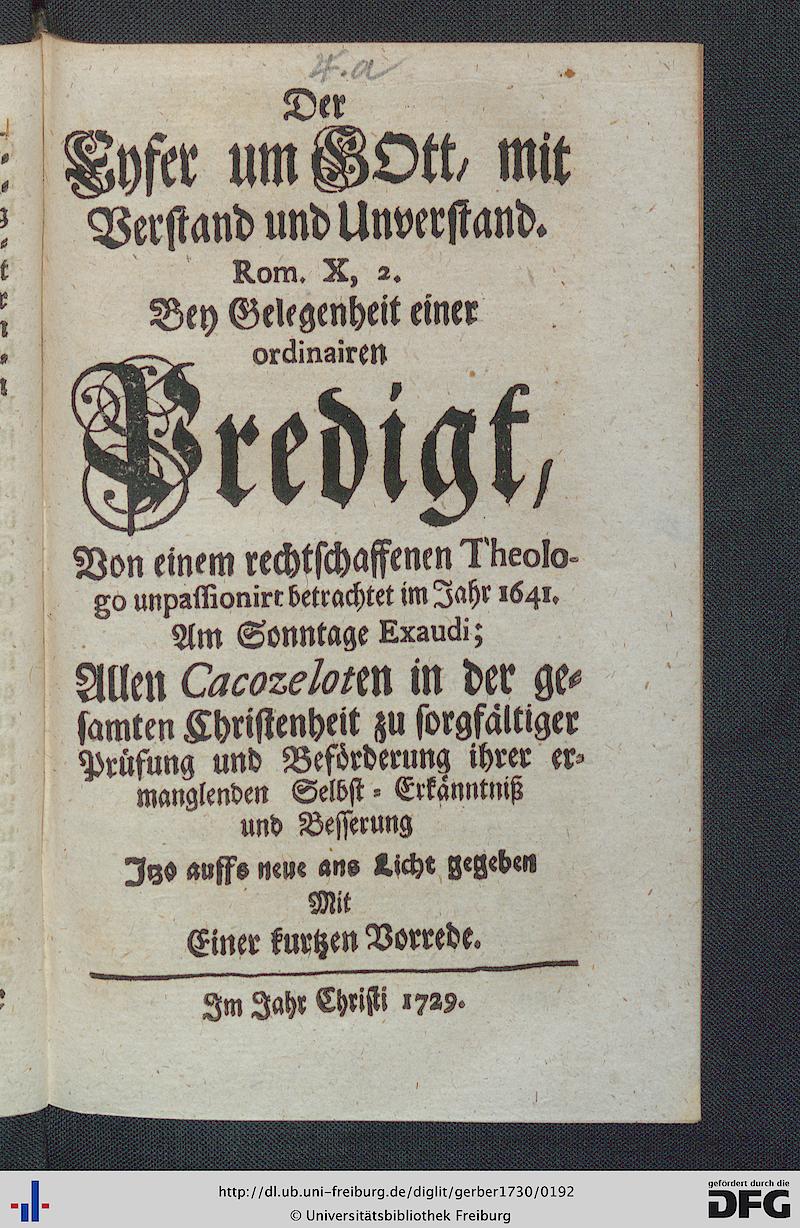 4.a
Der
Eyfer um GOtt, mit
Verstand und Unverstand.
Rom. X, 2.
Bey Gelegenheit einer
ordinairen
Predigt,
Von einem rechtschaffenen Theolo-
go unpassionirt betrachtet im Jahr 1641.
Am Sonntage Exaudi;
Allen Cacozeloten in der ge-
samten Christenheit zu sorgfältiger
Prüfung und Beförderung ihrer er-
manglenden Selbst-Erkänntniß
und Besserung
Itzo auffs neue ans Licht gegeben
Mit
Einer kurtzen Vorrede.
Im Jahr Christi 1729.
http://dl.ub.uni-freiburg.de/diglit/gerber1730/0192
© Universitätsbibliothek Freiburg
gefördert durch die
DFG